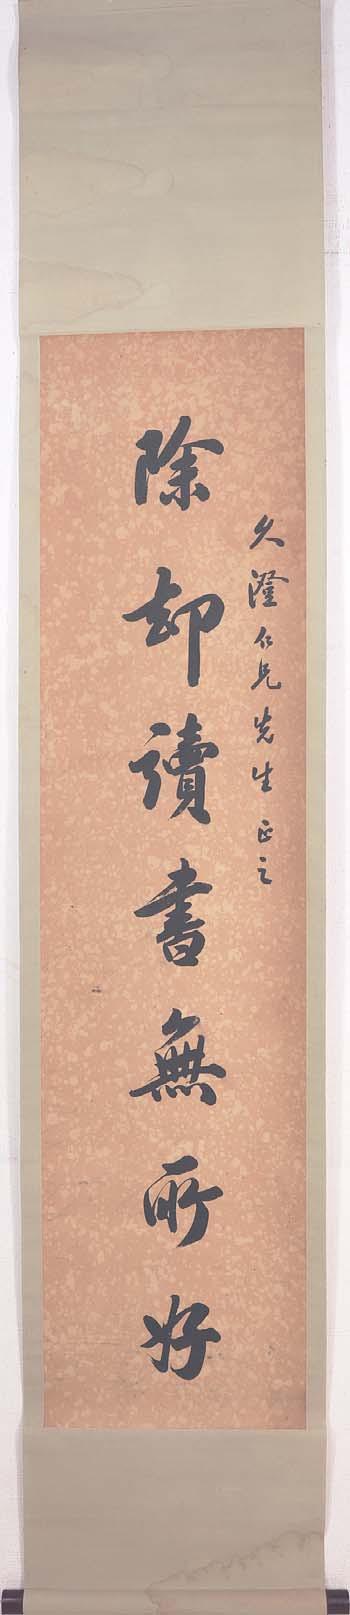 久澄仁兄先生正之
除却讀書無所好